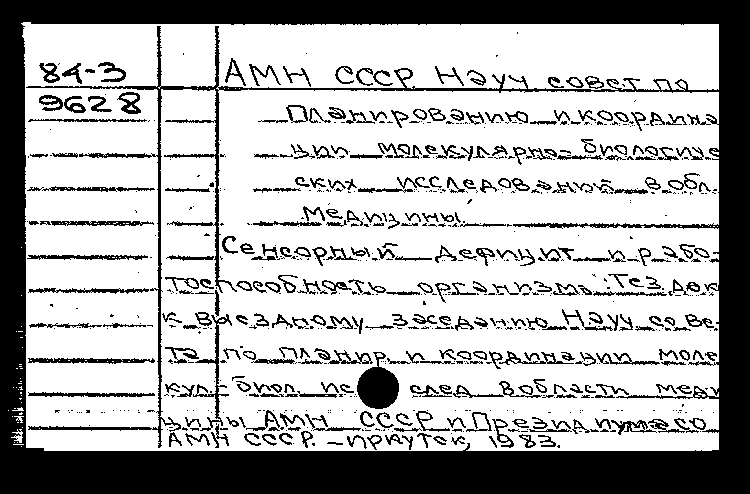 84-3 АМН СССР Науч совет по
9628 планированию и координа
ции молекулярно-биологиче
ских исследований в обл.
медицины.
Сенсорный дефицит и рабо-
тоспособность организма: Тез док
к выездному заседанию Науч сове-
та по планир и координации моле
кул-биол исслед в области меди
цины АМН СССР и Президиума СО
АМН СССР. - Иркутск, 1983.